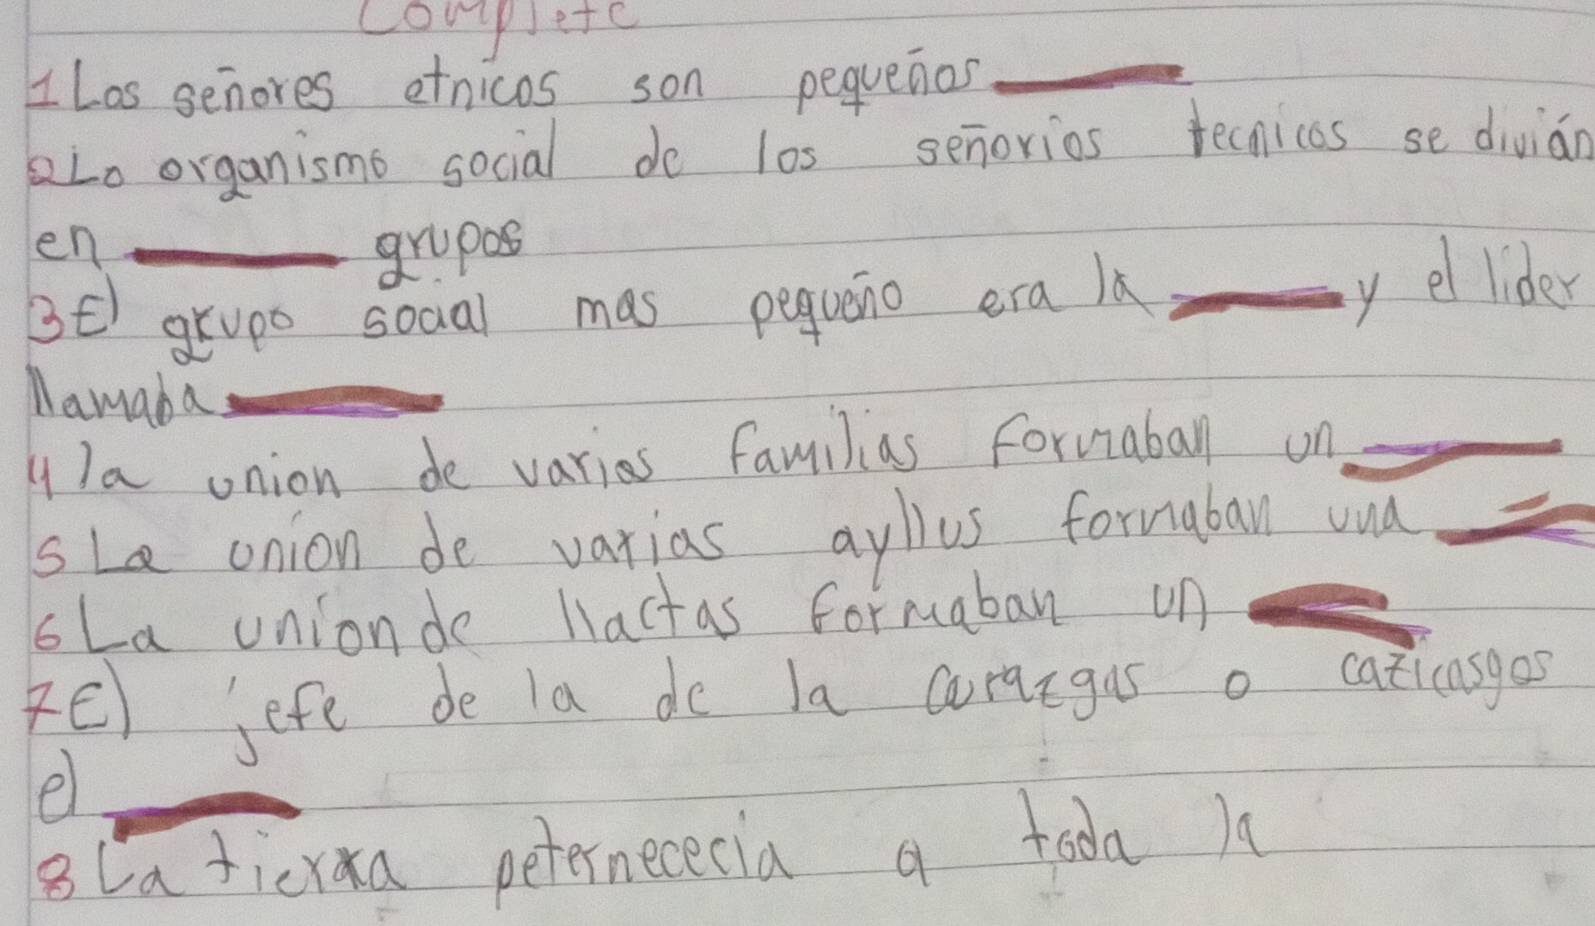 Complete
1 Los señores etnicos son pequeños
2 Lo organismo social de los señorios tecnicos se divián
en grupos
3 El grupo social mas pequeño era la y el lider
llamaba
4 la union de varios familias formaban un
5 La union de varias ayllus formaban una
6 La union de llactas formaban un
7 El jefe de la de la o
el
8 La tierra peternececia a toda la